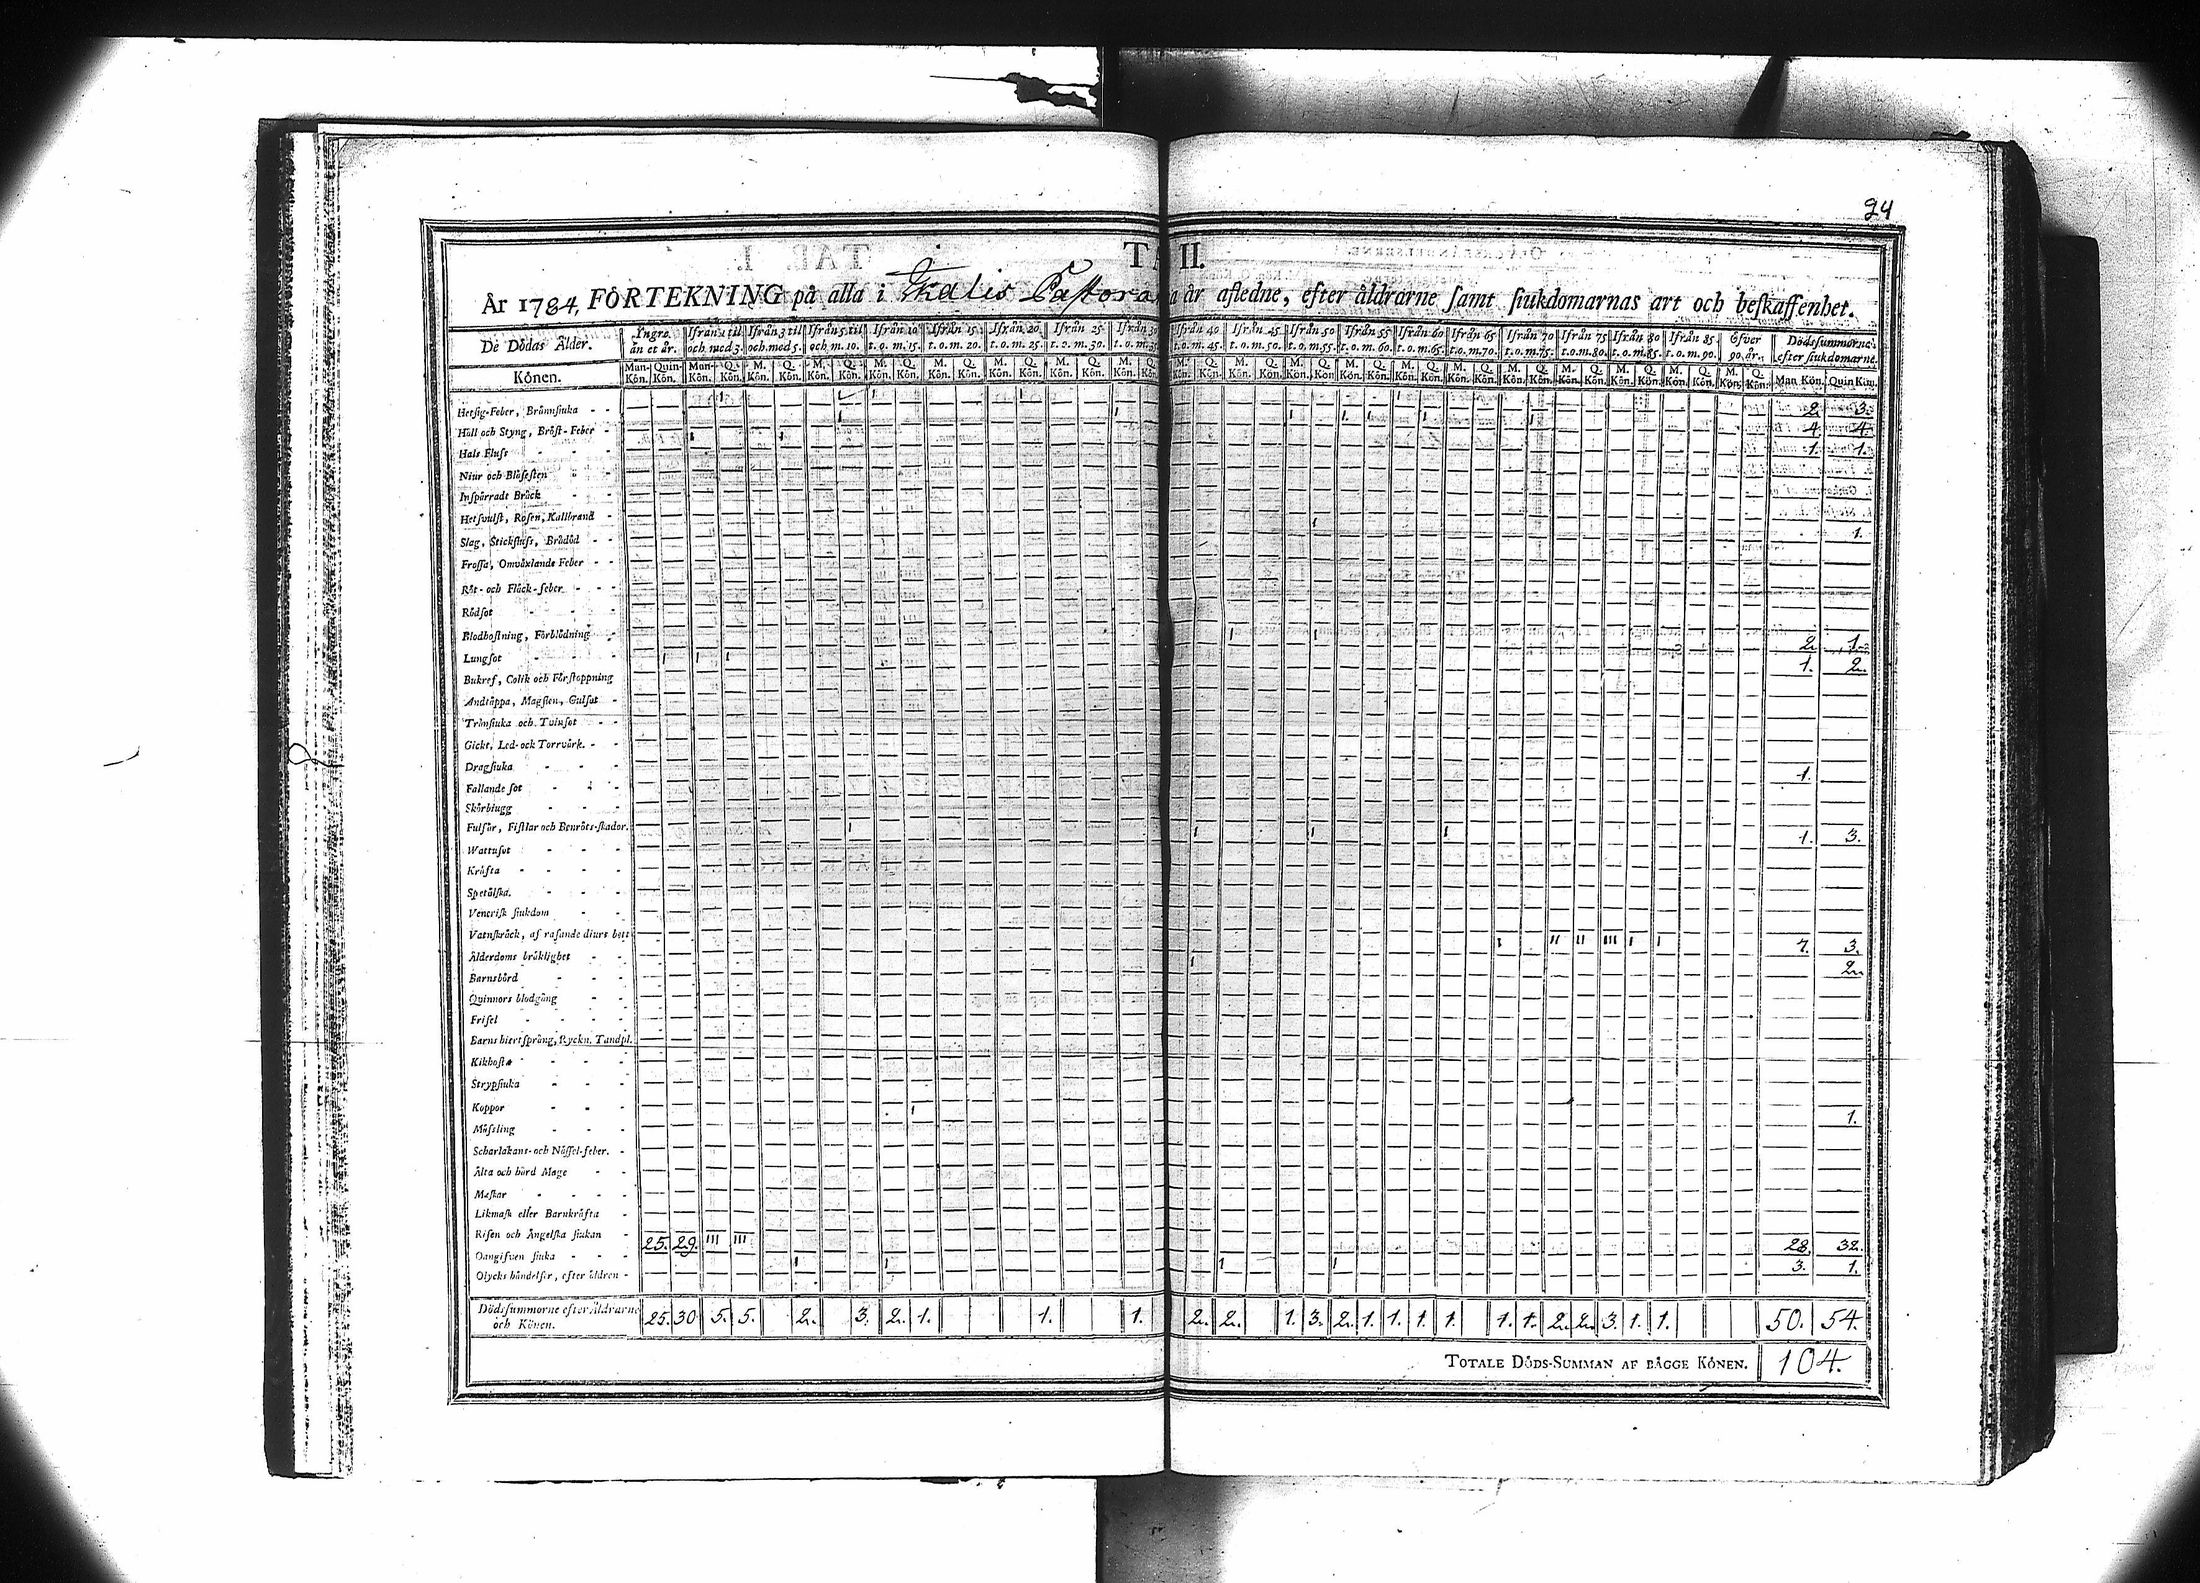 24
TA II.
År 1784, FÖRTEKNING på alla i Kalis Pastorat a år afledne, efter åldrarne samt siukdomarnas art och beskaffenhet.
De Dödas Ålder. Yngre än et år. Ifrån 1 til och med 3. Ifrån 3 til och med 5. Ifrån 5 til och m. 10. Ifrån 10 t. o. m. 15. Ifrån 15 t. o. m. 20. Ifrån 20 t. o. m. 25. Ifrån 25 t. o. m. 30. Ifrån 30 t. o. m. Ifrån 40 t. o. m. 45. Ifrån 45 t. o. m. 50. Ifrån 50 t. o. m. 55. Ifrån 55 t. o. m. 60. Ifrån 60 t. o. m. 65. Ifrån 65 t. o. m. 70. Ifrån 70 t. o. m. 75. Ifrån 75 t. o. m. 80. Ifrån 80 t. o. m. 85. Ifrån 85 t. o. m. 90. Öfver 90 år. Dödssummorne efter siukdomarne.
Könen. Man-Kön. Quin-Kön. Man-Kön. Q. Kön. M. Kön. Q. Kön. M. Kön. Q. Kön. M. Kön. Q. Kön. M. Kön. Q. Kön. M. Kön. Q. Kön. M. Kön. Q. Kön. M. Kön. M. Kön. Q. Kön. M. Kön. Q. Kön. M. Kön. Q. Kön. M. Kön. Q. Kön. M. Kön. Q. Kön. M. Kön. Q. Kön. M. Kön. Q. Kön. M. Kön. Q. Kön. M. Kön. Q. Kön. M. Kön. Q. Kön. M. Kön. Q. Kön. Man Kön. Quin Kön.
Hetsig-Feber, Brännsiuka 2. 3.
Håll och Styng, Bröst-Feber 4. 4.
Hals Fluss 1. 1.
Niur och Blåsesten
Inspärradt Bråck
Hetsvulst, Rosen, Kallbrand
Slag, Stickfluss, Brådöd 1.
Frossa, Omväxlande Feber
Röt- och Fläck-feber
Rödsot
Blodhostning, Förblödning
Lungsot 2. 1.
Bukref, Colik och Förstoppning 1. 2.
Andtäppa, Magsten, Gulsot
Trånsiuka och Tvinsot
Gickt, Led- och Torrvärk
Dragsiuka
Fallande sot 1.
Skörbiugg
Fulsår, Fistlar och Benröts-skador
Wattusot 1. 3.
Kräfta
Spetälska
Venerisk siukdom
Vatnskräck, af rasande diurs bett
Ålderdoms bräklighet 7. 3.
Barnsbörd 2.
Quinnors blodgång
Frisel
Barns hiertsprång, Ryckn. Tandpl.
Kikhosta
Strypsiuka
Koppor 1.
Mässling
Scharlakans- och Nässel-feber
Älta och hård Mage
Maskar
Likmask eller Barnkräfta
Risen och Ängelska siukan
Oangifven siuka 25. 29. III III 28. 32.
Olycks händelser, efter åldren 3. 1.
Dödssummorne efter Åldrarne och Könen. 25. 30 5. 5. 2. 3. 2. 1. 1. 1. 2. 2. 1. 3. 2. 1. 1. 1. 1. 1. 1. 2. 2. 3. 1. 1. 50. 54.
TOTALE DÖDS-SUMMAN AF BÄGGE KÖNEN. 104.